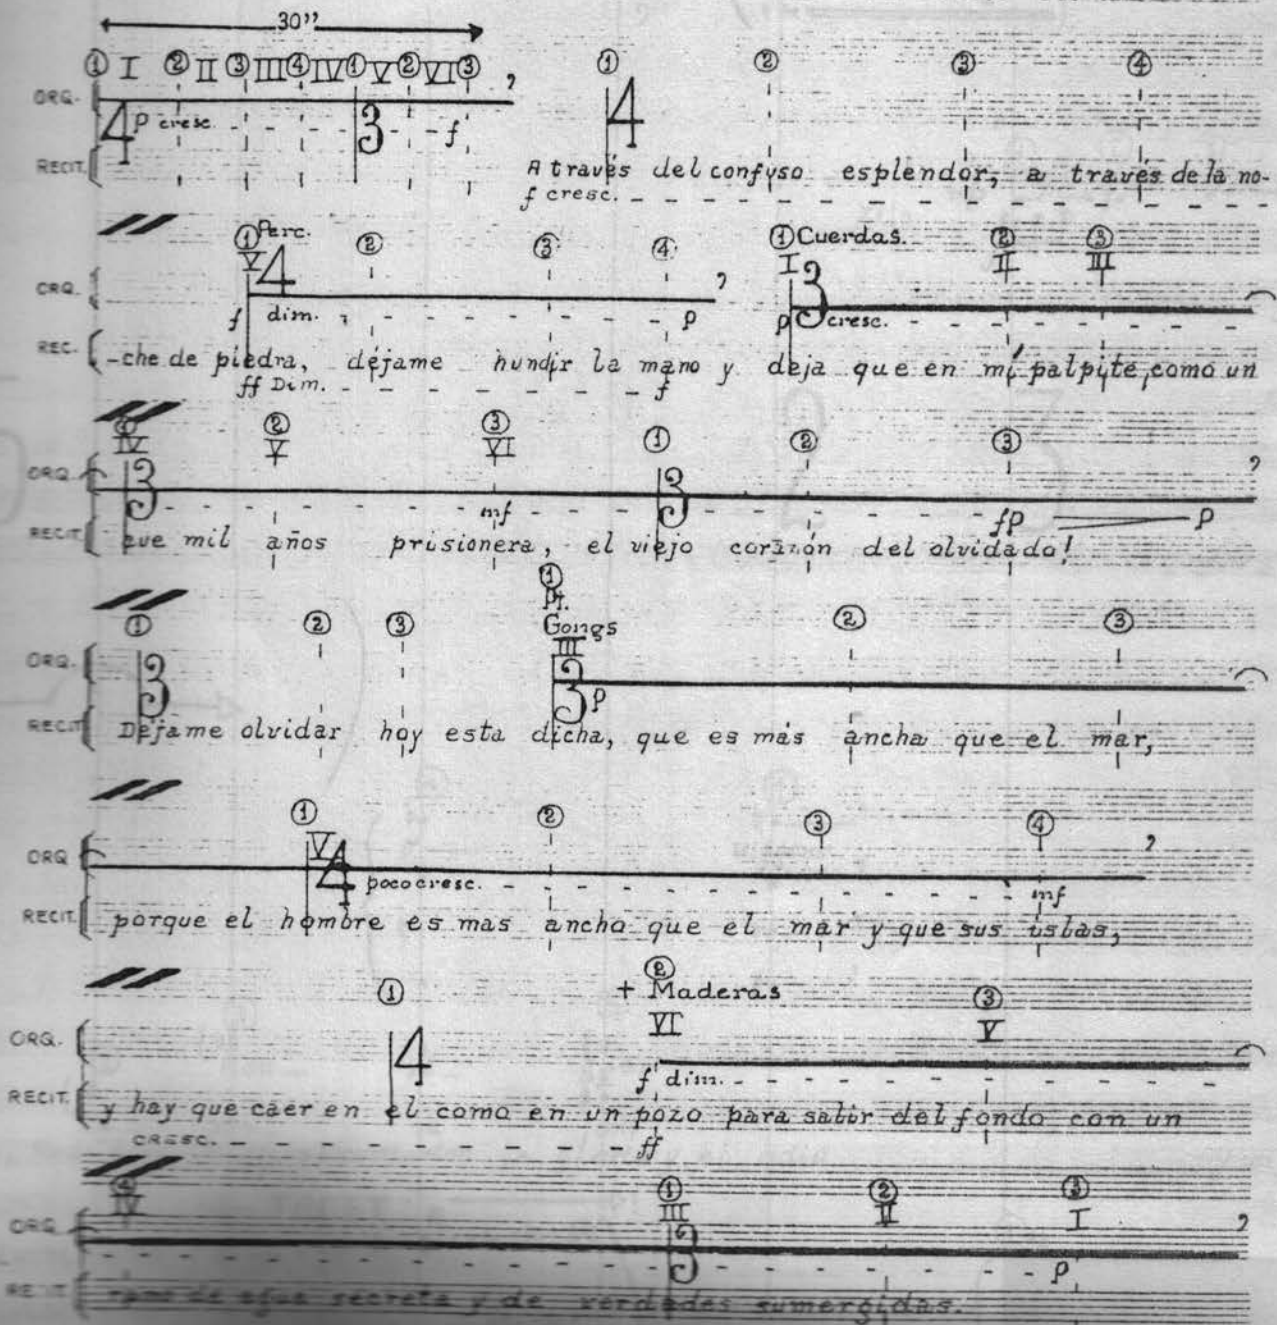 30"
① I ② II ③ III ④ IV ① V ② VI ③ ① ② ③ ④
ORQ. 4 p cresc. 3 f , 4
RECIT. A través del confuso esplendor, a través de la no-
f cresc.
① Perc. ② ③ ④ ① Cuerdas. ② ③
V I II III
ORQ. 4 f dim. p , 3 p cresc.
REC. -che de piedra, déjame hundir la mano y deja que en mí palpite, como un
ff Dim. f
② ③ ① ② ③
IV V VI
ORQ. 3 mf 3 fp p ,
RECIT. ave mil años prisionera, el viejo corazón del olvidado!
①
Pt.
① ② ③ Gongs ② ③
III
ORQ. 3 3 p
RECIT. Déjame olvidar hoy esta dicha, que es más ancha que el mar,
① ② ③ ④
V
ORQ 4 poco cresc. mf ,
RECIT. porque el hombre es mas ancho que el mar y que sus islas,
②
① + Maderas ③
VI V
ORQ. 4 f dim.
RECIT. y hay que caer en el como en un pozo para salir del fondo con un
cresc. ff
④ ① ② ③
IV III II I
ORQ 3 p ,
RECIT ramo de agua secreta y de verdades sumergidas.